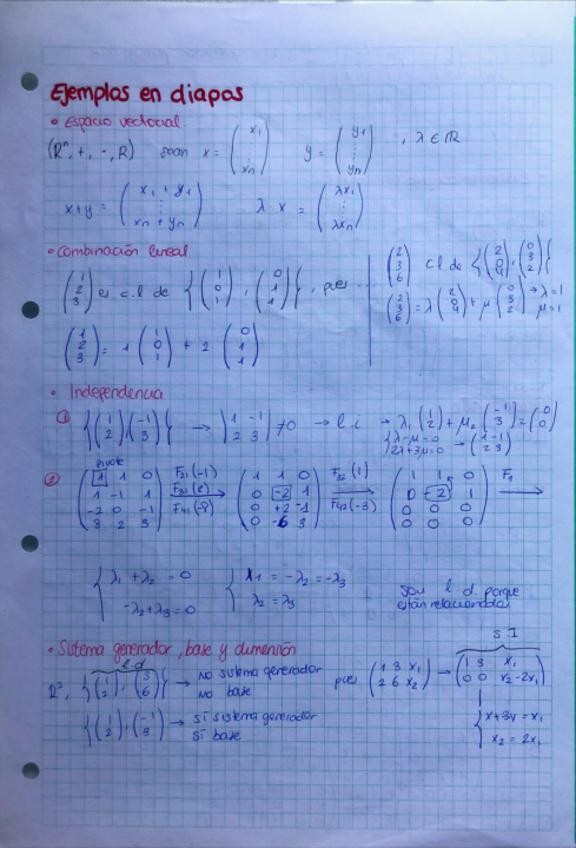 Ejemplos en diapos
• Espacio vectorial.
(ℝⁿ, +, ·, ℝ) sean x = (x₁ ⋮ xₙ) y = (y₁ ⋮ yₙ), λ ∈ ℝ
x+y = (x₁ + y₁ ⋮ xₙ + yₙ) λ x = (λx₁ ⋮ λxₙ)
• Combinación lineal
(1 2 3) es c.l de {(1 0 1), (0 1 1)}, pues
(1 2 3) = 1 (1 0 1) + 2 (0 1 1)
(2 3 6) c l de {(2 0 4), (0 3 2)}
(2 3 6) = λ (2 0 4) + μ (0 3 2) → λ=1 μ=1
• Independencia
① {(1 2) (-1 3)} → |1 -1 2 3| ≠0 → l.i → λ₁ (1 2) + μ₂ (-1 3) = (0 0)
{λ-μ=0 2λ+3μ=0 → (1 -1 2 3)
pivote
② (1 1 0 1 -1 1 -2 0 -1 3 2 3) F₂₁(-1) F₃₁(2) → (1 1 0 0 -2 1 0 +2 -1 0 -6 3) F₃₂(1) F₄₂(-3) → (1 1 0 0 -2 1 0 0 0 0 0 0) →
{λ₁ + λ₂ = 0 -λ₂+λ₃=0
{λ1 = -λ₂ = -λ₃ λ₂ = λ₃
son l d. porque
están relacionados
• Sistema generador, base y dimensión
l.d
ℝ², {(1 2), (3 6)} → no sistema generador
no base
pues (1 3 x₁ 2 6 x₂) → (1 3 x₁ 0 0 x₂-2x₁)
S I
{(1 2), (-1 3)} → sí sistema generador
sí base
{x+3y = x₁
x₂ = 2x₁